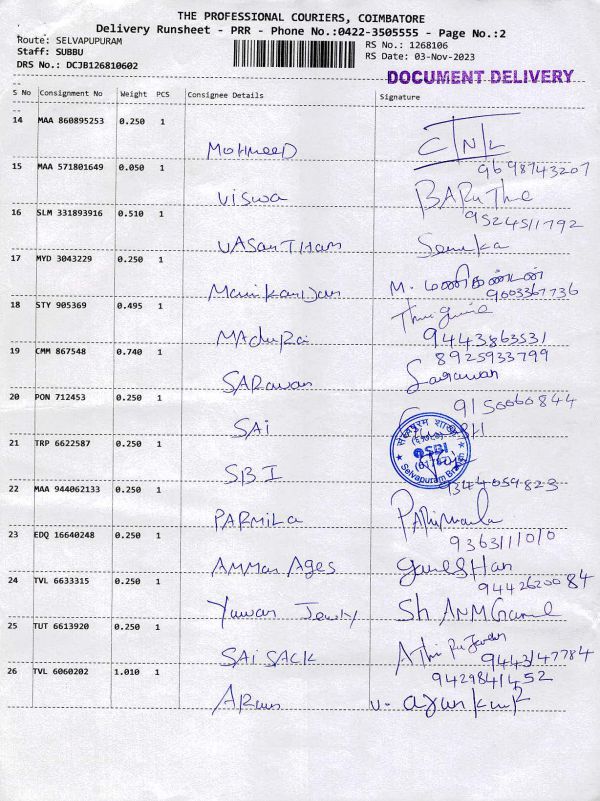 THE PROFESSIONAL COURIERS, COIMBATORE
Delivery Runsheet - PRR - Phone No.:0422-3505555 - Page No.:2
Route: SELVAPUPURAM
Staff: SUBBU
DRS No.: DCJB126810602
RS No.: 1268106
RS Date: 03-Nov-2023
DOCUMENT DELIVERY
S No Consignment No Weight PCS Consignee Details Signature
14 MAA 860895253 0.250 1
MOHMEED
9698743207
15 MAA 571801649 0.050 1
Viswa
9524511792
16 SLM 331893916 0.510 1
VASANTHAM
17 MYD 3043229 0.250 1
Manikandan M. மணிகண்டன்
9003367736
18 STY 905369 0.495 1
MAduRai 9443863531
19 CMM 867548 0.740 1
8925933799
SARavan Saravan
20 PON 712453 0.250 1
9150060844
SAI
21 TRP 6622587 0.250 1
SBI
SBI
Selvapuram Branch
9344059823
22 MAA 944062133 0.250 1
PARMILa
9363111010
23 EDQ 16640248 0.250 1
AMMan Ages GaneSHan
9442620084
24 TVL 6633315 0.250 1
Yuwan Jewly
25 TUT 6613920 0.250 1
SAISACK
9443147784
26 TVL 6060202 1.010 1
9429841452
ARun